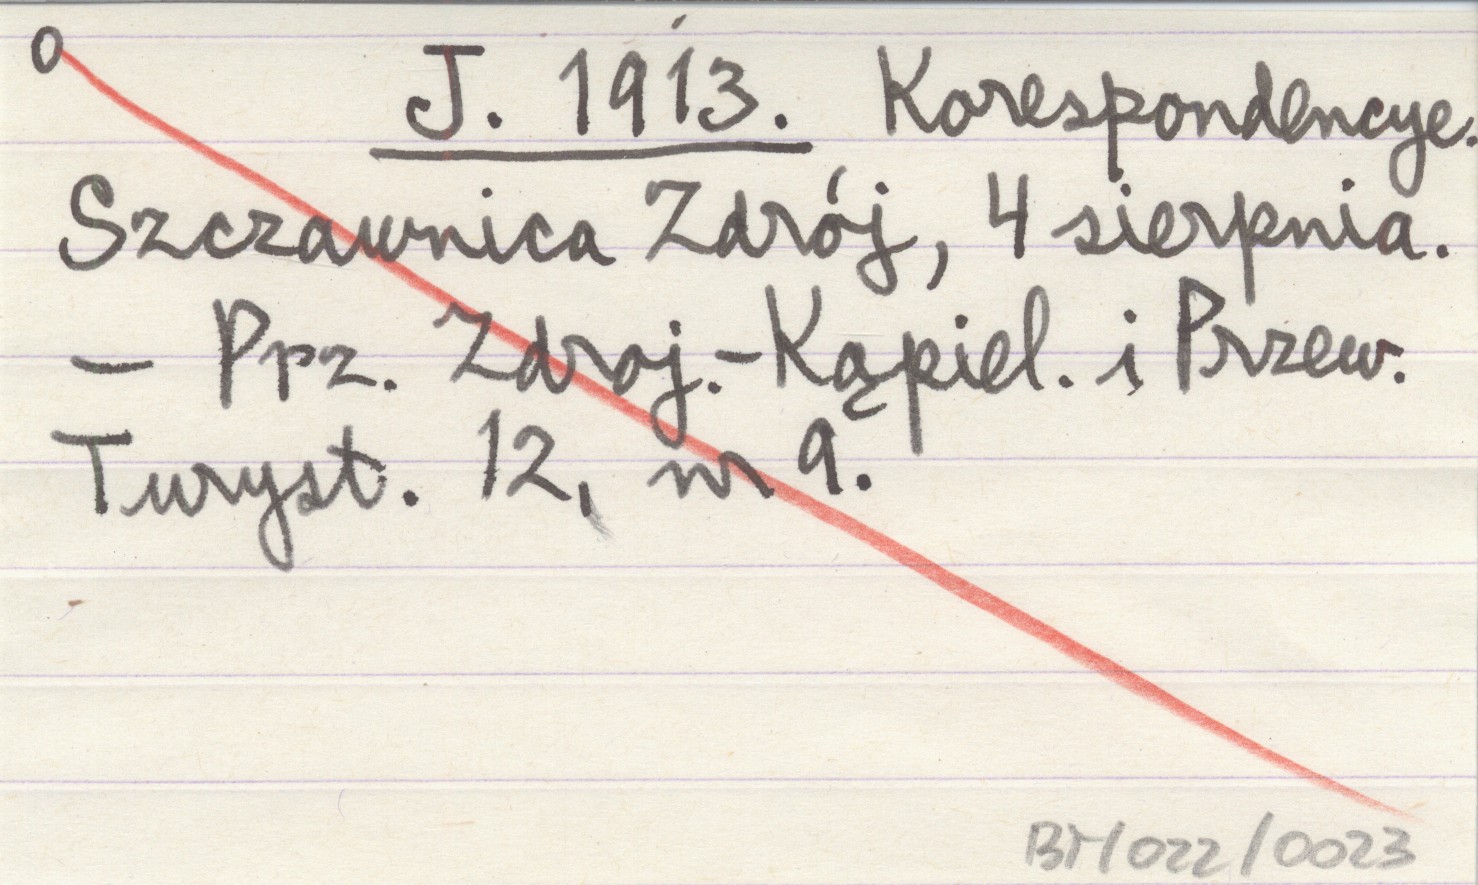 O
J. 1913. Korespondencye.
Szczawnica Zdrój, 4 sierpnia.
— Prz. Zdroj.-Kąpiel. i Przew.
Turyst. 12, nr 9.
BM/022/0023